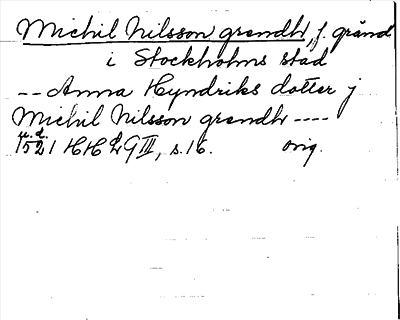 Michil Nilsson grendh, f. gränd
i Stockholms stad
-- Anna Hyndriks dotter j
Michil Nilsson grendh ----
u.d.
1521 HH 2 G III, s. 16. orig.